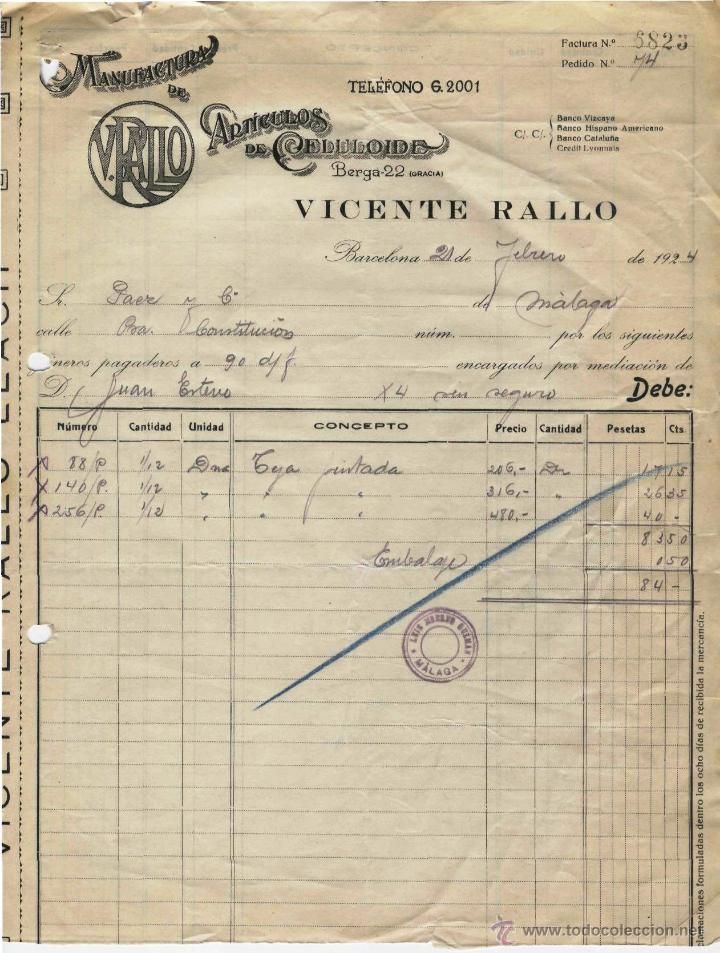 Factura N.º 5823
Pedido N.º 74
MANUFACTURA
DE
ARTÍCULOS
DE CELULOIDE
V. RALLO
TELÉFONO 6.2001
Berga-22 (GRACIA)
C/. C/.
Banco Vizcaya
Banco Hispano Americano
Banco Cataluña
Credit Lyonnais
VICENTE RALLO
Barcelona 21 de Febrero de 1924
Sr. Paez y Cª de Málaga
calle Pza. Constitución núm. por los siguientes
géneros pagaderos a 90 d/f. encargados por mediación de
D. Juan Esteve X4 sin seguro Debe:
Número Cantidad Unidad CONCEPTO Precio Cantidad Pesetas Cts.
X 88/P. 1/12 Dna Teja pintada 206,- Dn 17 15
X 140/P. 1/12 " " " 316,- " 26 35
X 256/P. 1/12 " " " 480,- 40 -
83 50
Embalaje 0 50
84 -
LUIS MORENO GUZMAN
MÁLAGA
VICENTE RALLO LLACH
clamaciones formuladas dentro los ocho días de recibida la mercancía.
www.todocoleccion.net